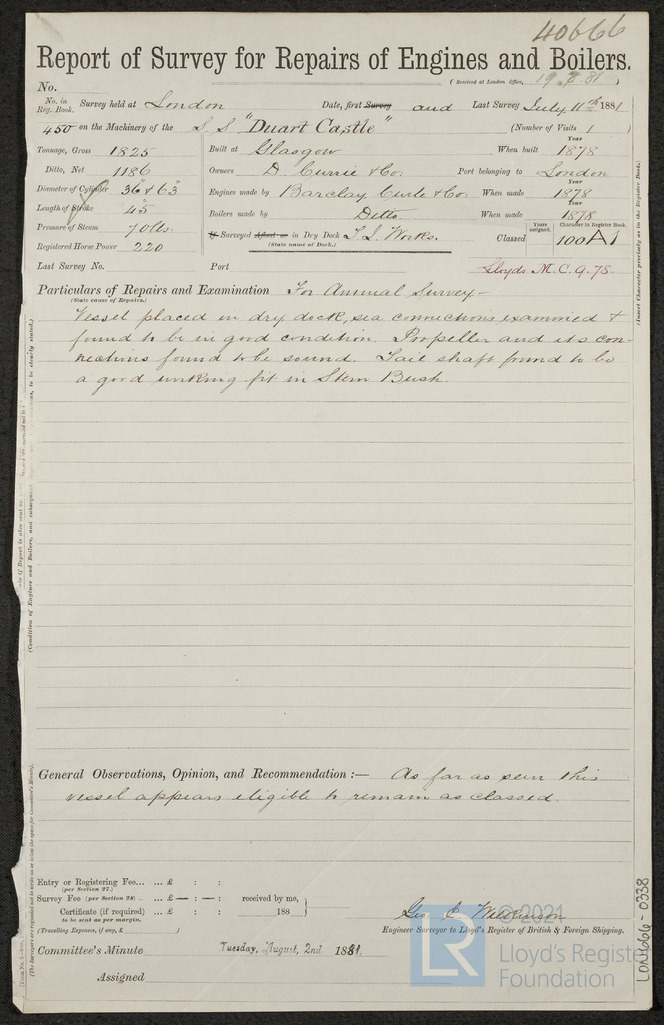 40666
Report of Survey for Repairs of Engines and Boilers.
No.
(Received at London Office, 19.8.81)
No. in Reg. Book. Survey held at London Date, first Survey and Last Survey July 11th 1881
450 on the Machinery of the S.S. "Duart Castle" (Number of Visits 1)
Tonnage, Gross 1825 Built at Glasgow When built Year 1878
Ditto, Net 1186 Owners D. Currie & Co. Port belonging to London
Diameter of Cylinder 36" & 63" Engines made by Barclay Curle & Co. When made 1878
Length of Stroke 45" Boilers made by Ditto When made Year 1878
Pressure of Steam 70 lbs. If Surveyed Afloat or in Dry Dock T. I. Works. Classed Years assigned. Character in Register Book. 100A1
(State name of Dock.)
Registered Horse Power 220
Last Survey No. Port Lloyds M.C. 9.78.
Particulars of Repairs and Examination For Annual Survey—
(State cause of Repairs.)
Vessel placed in dry dock, sea connections examined &
found to be in good condition. Propeller and its con-
nections found to be sound. Tail shaft found to be
a good working fit in Stern Bush.
General Observations, Opinion, and Recommendation:— As far as seen this
vessel appears eligible to remain as classed.
Entry or Registering Fee... ... £ : :
(per Section 27.)
Survey Fee (per Section 28) ... £ — : — : received by me,
Certificate (if required) ... £ : : 188
to be sent as per margin.
(Travelling Expenses, if any, £ )
Geo. Wilkinson
Engineer Surveyor to Lloyd's Register of British & Foreign Shipping.
Committee's Minute Tuesday, August, 2nd 1881.
Assigned
(Insert Character precisely as in the Register Book.)
LON666-0338
© 2021
LR
Lloyd's Register
Foundation